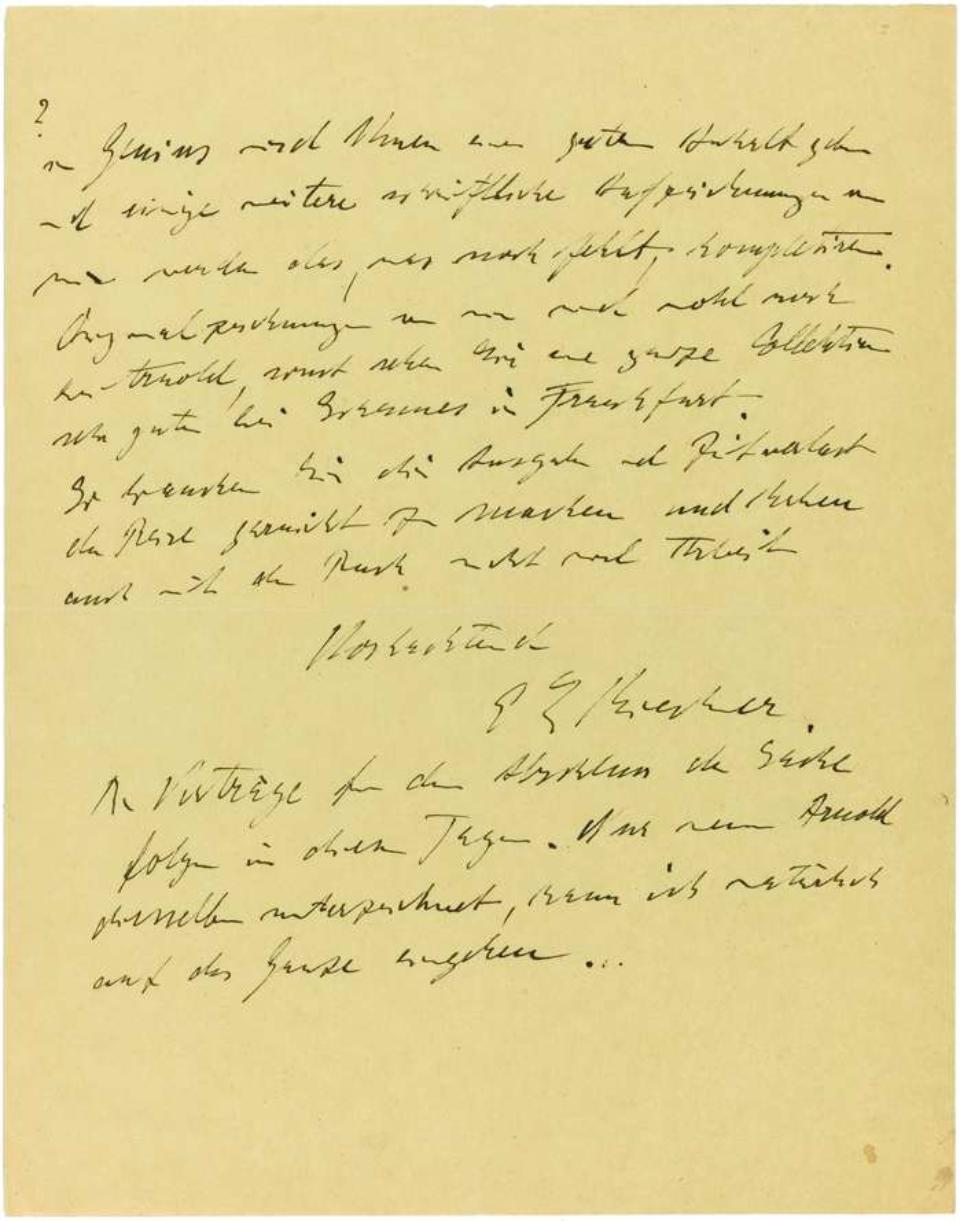 ?
im Genius wird Ihnen einen guten Anhalt geben
und einige weitere schriftliche Aufzeichnungen von
mir werden das, was noch fehlt, kompletieren.
Originalzeichnungen von mir sind wohl noch
bei Arnold, sonst sehen Sie eine ganze Collektion
sehr guter bei Schames in Frankfurt.
So brauchen Sie die Ausgabe und Zeitverlust
der Reise garnicht zu machen und haben
auch mit dem Buch nicht viel Arbeit
Hochachtend
E L Kirchner.
Die Verträge für den Abschluss der Sache
folgen in diesen Tagen. Nur wenn Arnold
dieselben unterzeichnet, kann ich natürlich
auf das Ganze eingehen ...